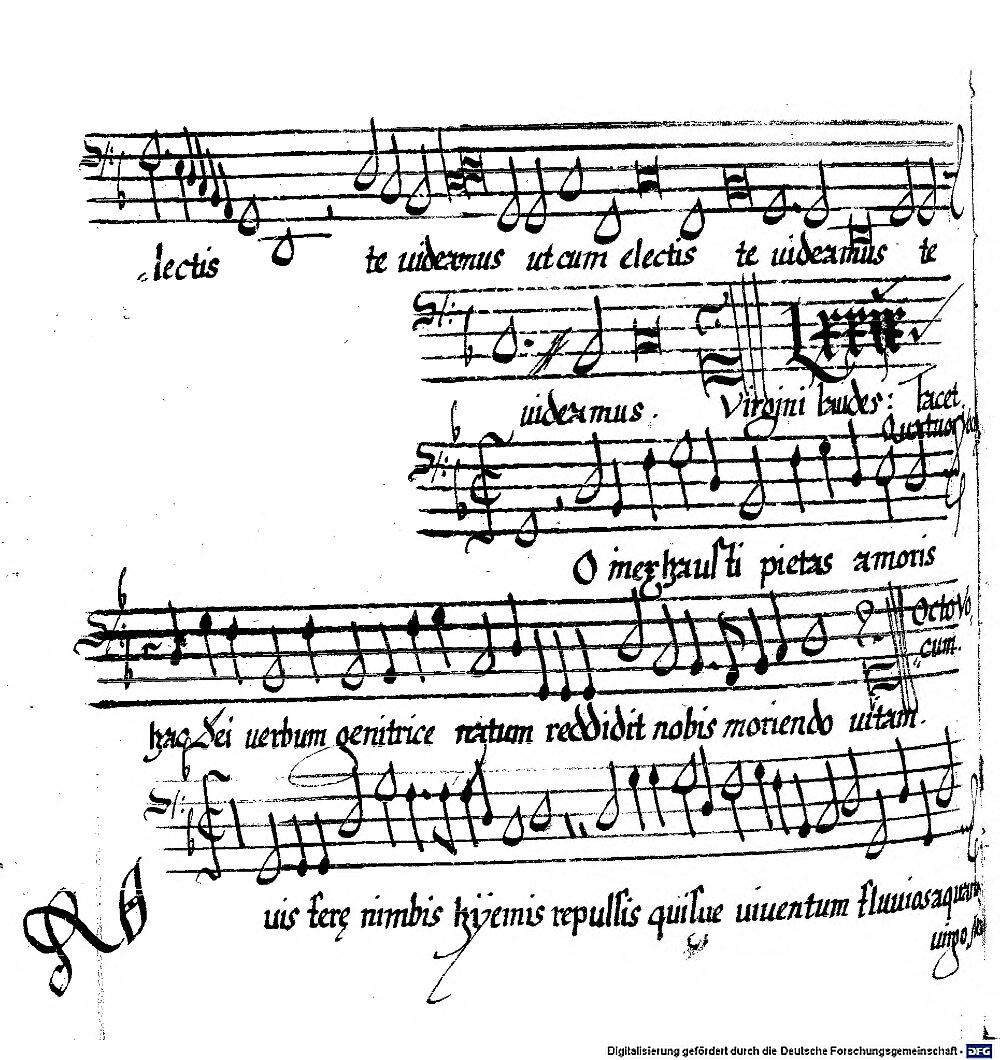 lectis te uideamus ut cum electis te uideamus te
uideamus. Virgini laudes: Tacet
Quatuor
O inexhausti pietas amoris
Octo Vo,
cum.
hac Dei uerbum genitrice natum reddidit nobis moriendo uitam.
uis ferę nimbis hyemis repulsis quisue uiuentum fluuios aquarum
Digitalisierung gefördert durch die Deutsche Forschungsgemeinschaft - DFG